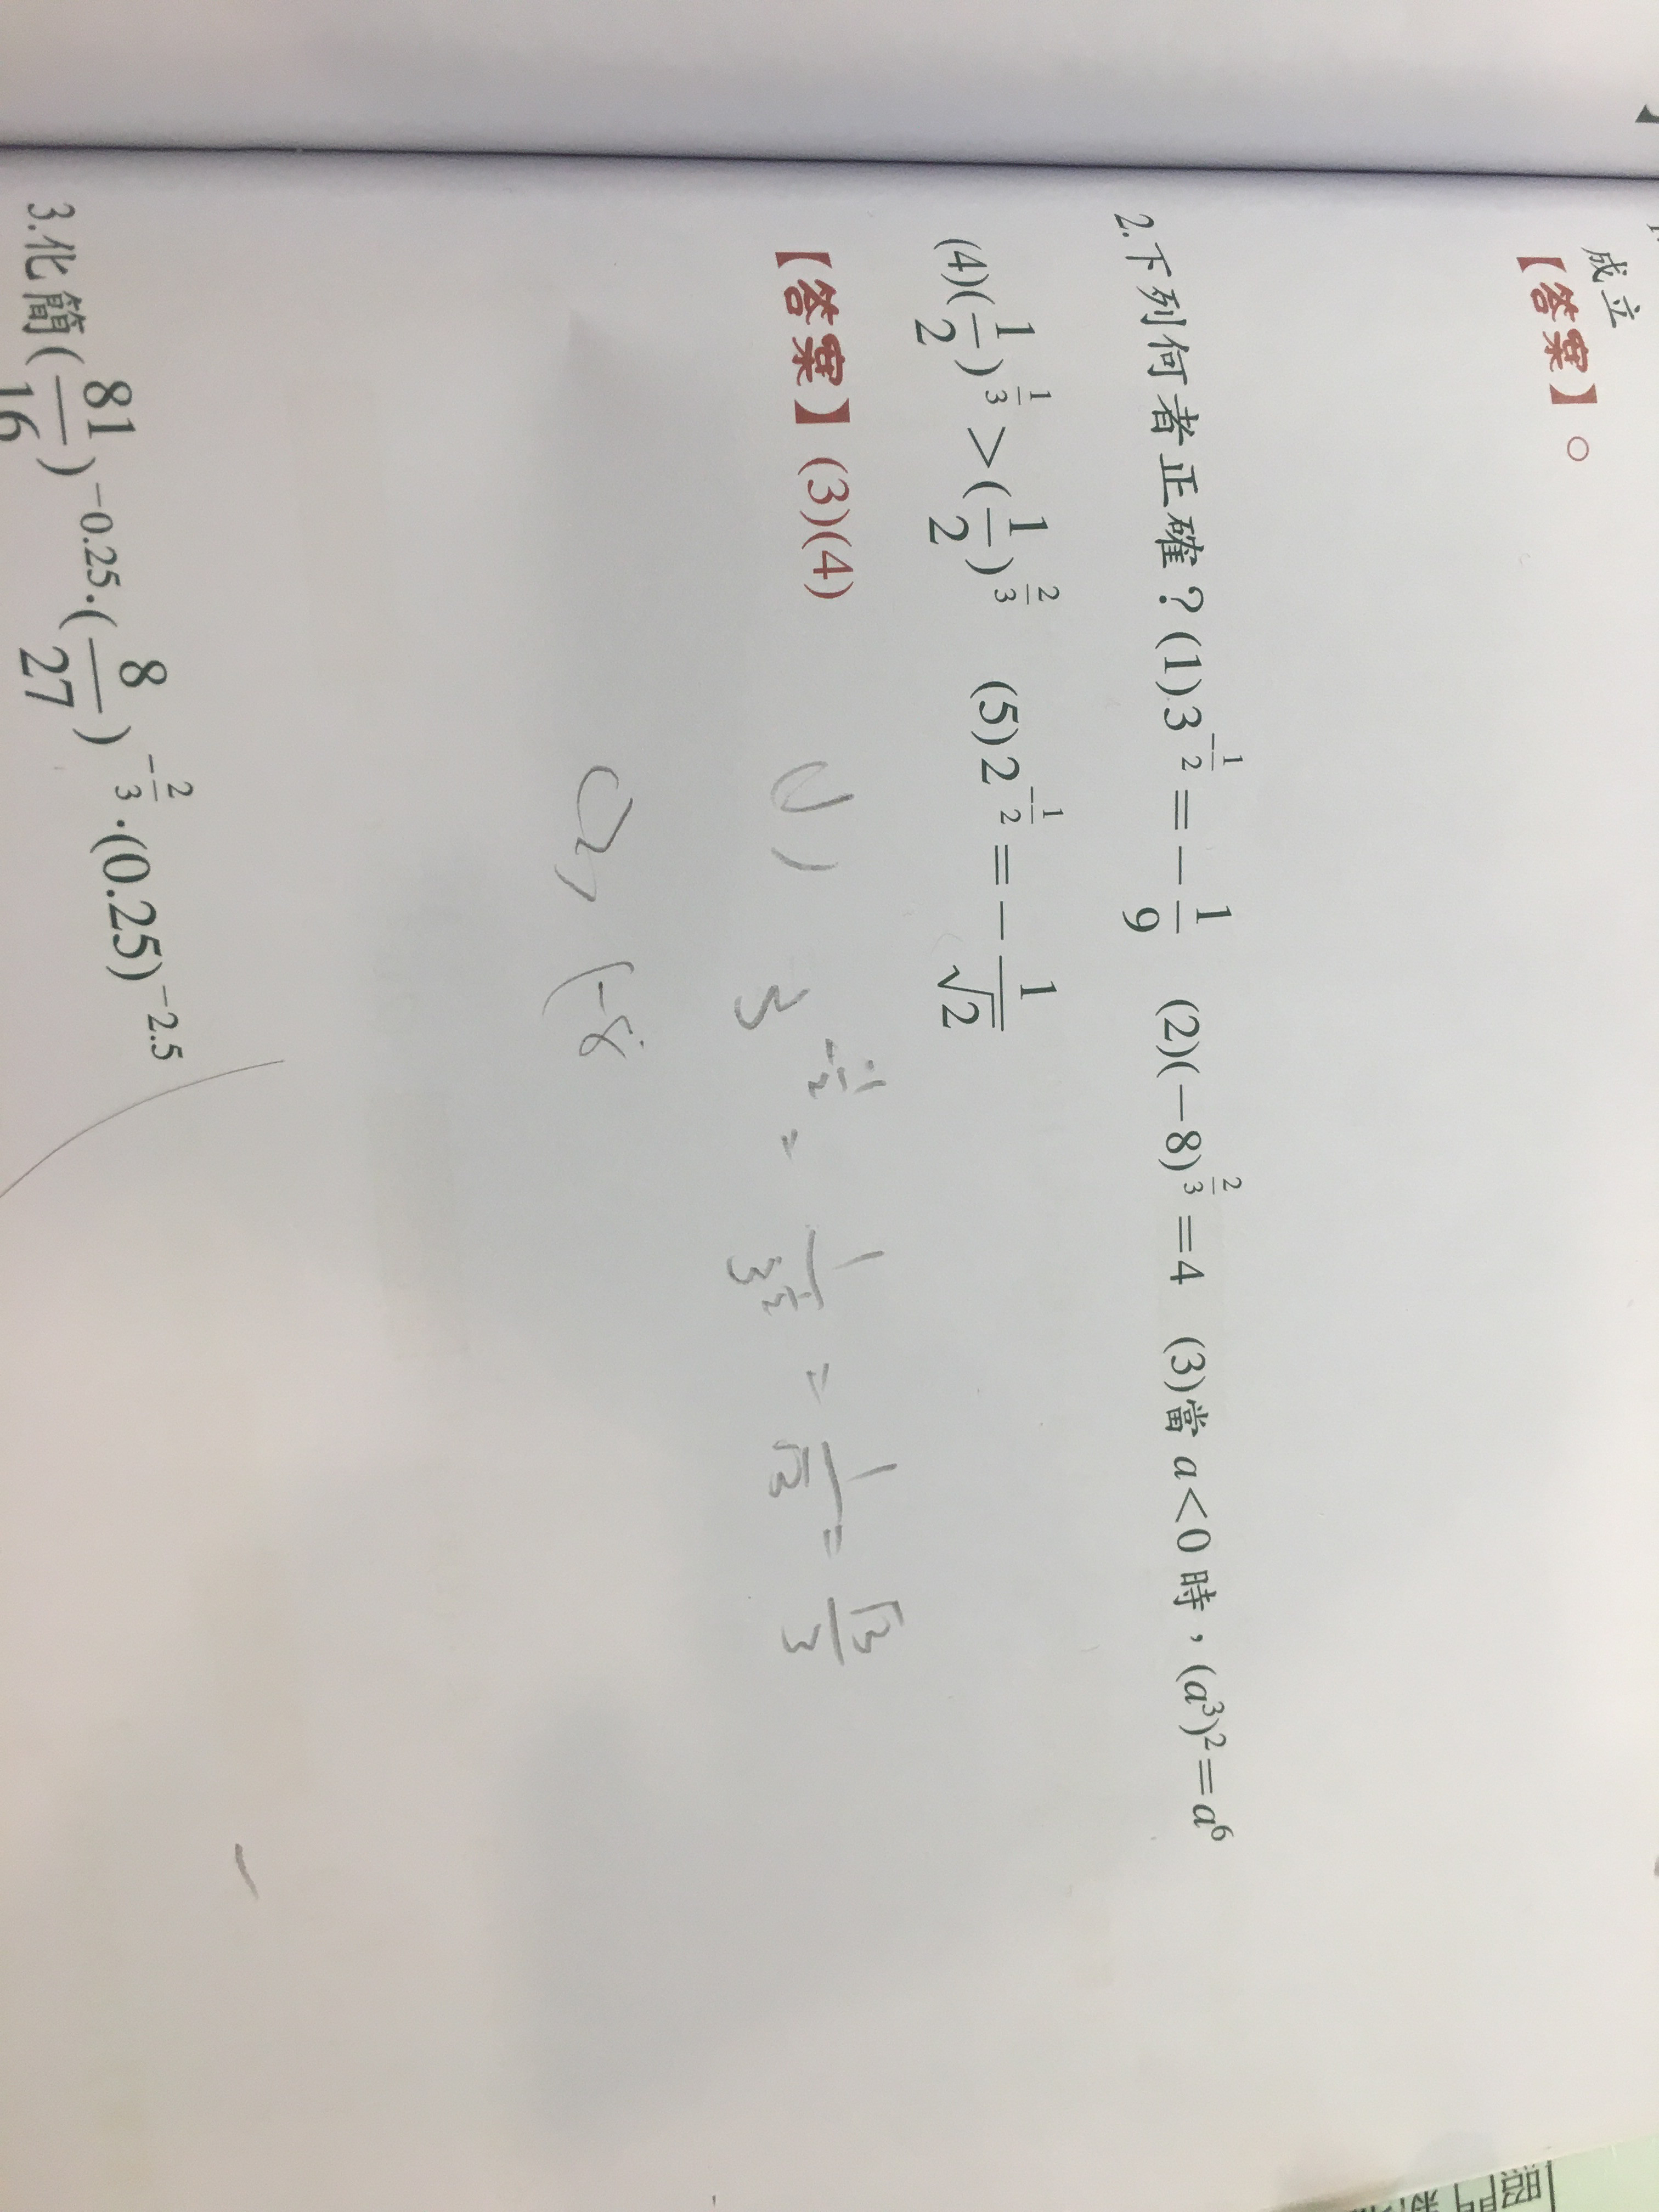 成立
【答案】○
2.下列何者正確？(1)3^{-\frac{1}{2}}=-\frac{1}{9} (2)(-8)^{\frac{2}{3}}=4 (3)當a<0時，(a³)²=a⁶
(4)(\frac{1}{2})^{\frac{1}{3}}>(\frac{1}{2})^{\frac{2}{3}} (5)2^{-\frac{1}{2}}=-\frac{1}{\sqrt{2}}
【答案】(3)(4)
(1) 3^{-\frac{1}{2}} = \frac{1}{3^{\frac{1}{2}}} = \frac{1}{\sqrt{3}} = \frac{\sqrt{3}}{3}
(2) (-8
3.化簡(\frac{81}{16})^{-0.25}·(\frac{8}{27})^{-\frac{2}{3}}·(0.25)^{-2.5}